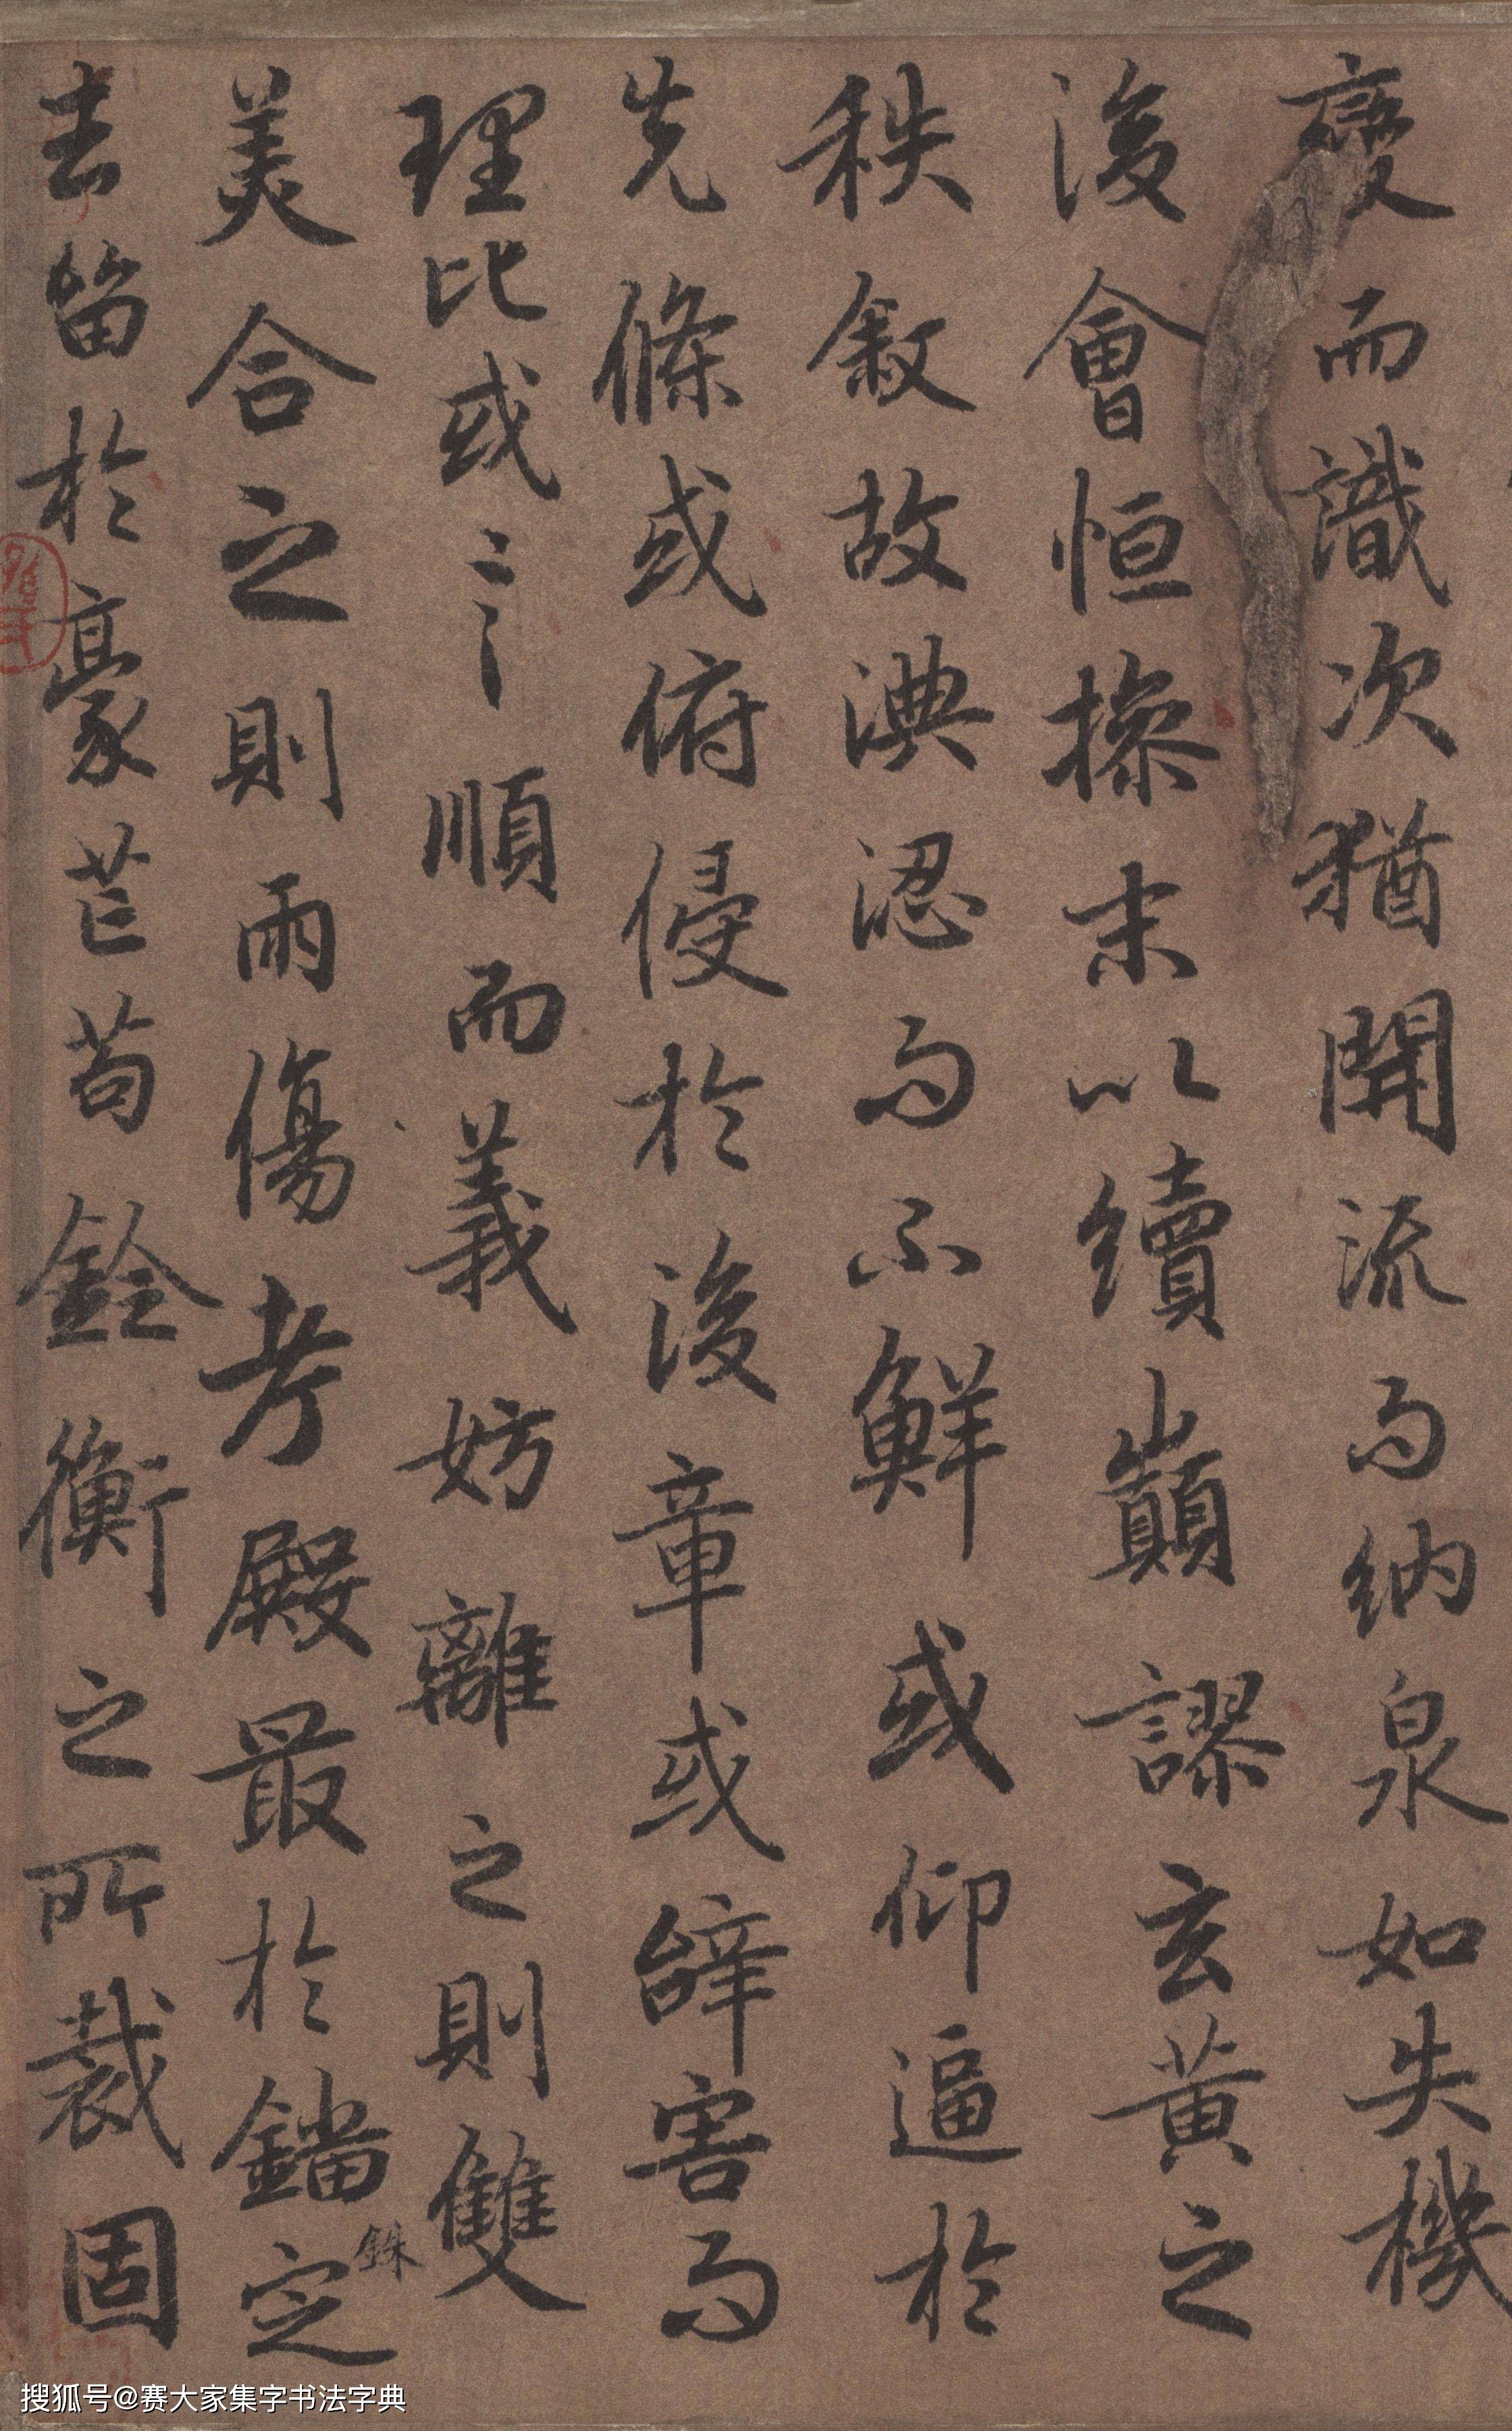 變而識次猶開流以納泉如失機
後會恒操末以續巔謬玄黃之
秩敘故淟涊而不鮮或仰逼於
先條或俯侵於後章或辭害而
理比或言順而義妨離之則雙
美合之則兩傷考殿最於錙定
銖
去留於豪芒苟銓衡之所裁固
搜狐号@赛大家集字书法字典